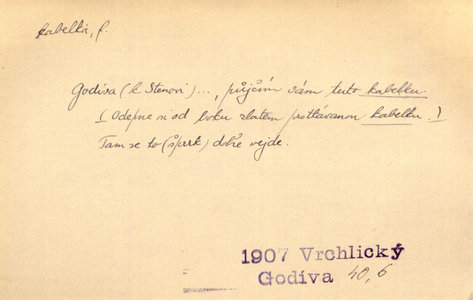 kabelka, f.
Godiva (k Stenovi) ..., půjčím vám tuto kabelku
(Odepne si od boku zlatem protkávanou kabelku.)
Tam se to (šperk) dobře vejde.
1907 Vrchlický
Godiva 40, 6